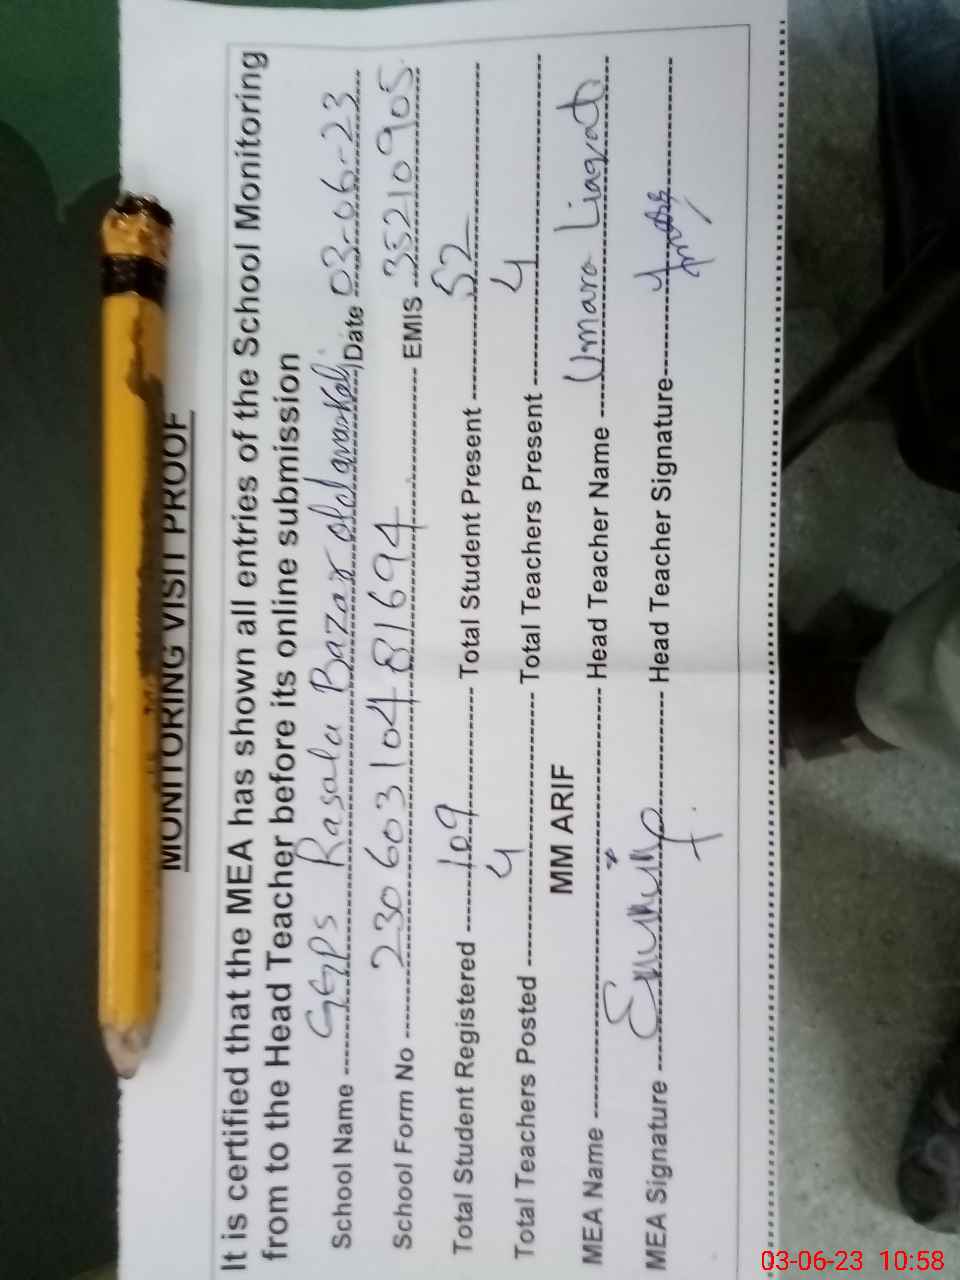 MONITORING VISIT PROOF
It is certified that the MEA has shown all entries of the School Monitoring
from to the Head Teacher before its online submission
School Name GGPS Rasala Bazar old anarkali Date 03-06-23
School Form No 230603104 81694 EMIS 35210905
Total Student Registered 109 Total Student Present 52
Total Teachers Posted 4 Total Teachers Present 4
MM ARIF
MEA Name Head Teacher Name Umara Liaqat
MEA Signature Head Teacher Signature
03-06-23 10:58